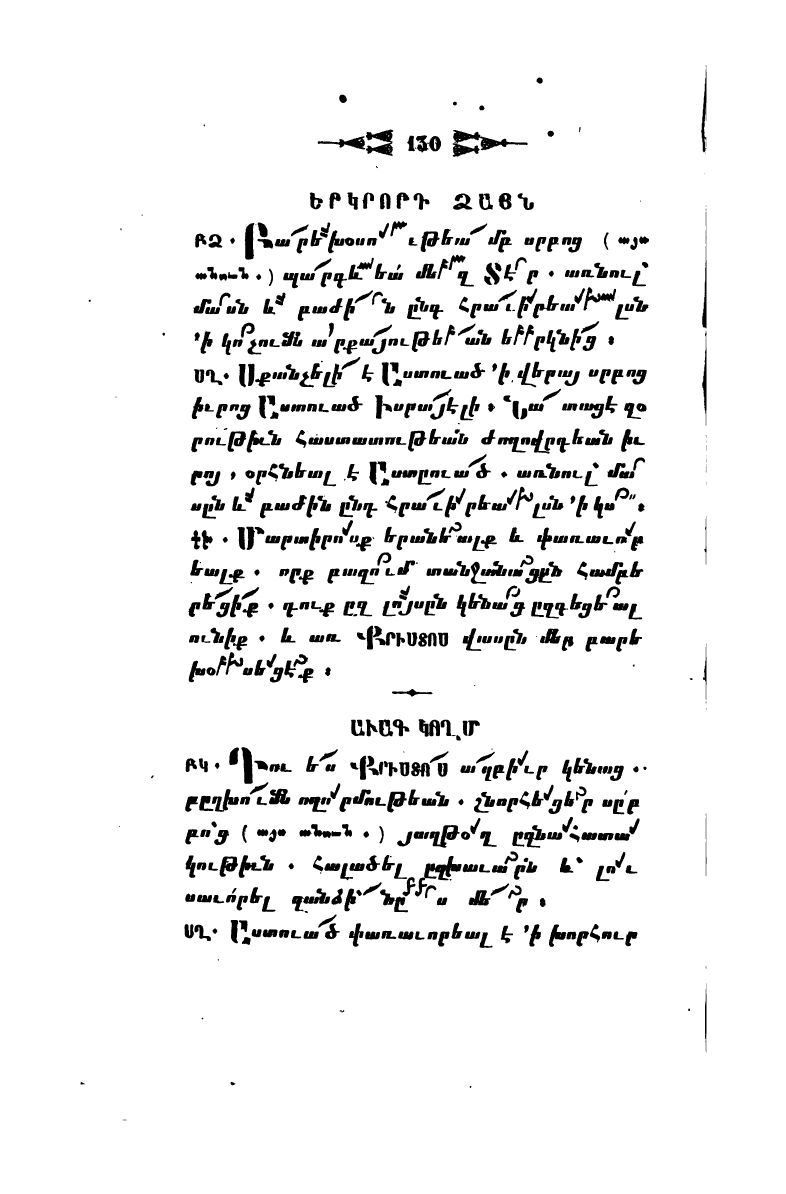 130
ԵՐԿՐՈՐԴ ՁԱՅՆ
ԲՁ. Բարեխօսութեամբ սրբոց (այս
անուն.) պարգևեա մեզ Տէր. առնուլ
մասն և բաժին ընդ հրաւիրեալսն
՚ի կոչումն արքայութեան երկնից։
ՍՂ. Սքանչելի է Աստուած ՚ի վերայ սրբոց
իւրոց Աստուած Իսրայէլի։ Նա տացէ զօ
րութիւն հաստատութեան ժողովրդեան իւ
րոյ, օրհնեալ է Աստըուած. առնուլ մա
սըն և բաժին ընդ հրաւիրեալսն ՚ի կո"։
ԴԻ. Մարտիրոսք երանեալք և փառաւոր
եալք. որք բազում տանջանացըն համբե
րեցիք. դուք ըզ լոյսըն կենաց ըզգեցեալ
ունիք. և առ ՔՐԻՍՏՈՍ վասըն մեր բարե
խօսեցէք։
ԱՒԱԳ ԿՈՂՄ
ԲԿ. Դու ես ՔՐԻՍՏՈՍ աղբիւր կենաց..
բըղխումն ողորմութեան. շնորհեցեր սըր
բոց (այս անուն.) յաղթող ըզնահատա
կութիւն. հալածել ըզխաւարն և լու
սաւորել զանձինըս մեր։
ՍՂ. Աստուած փառաւորեալ է ՚ի խորհուր